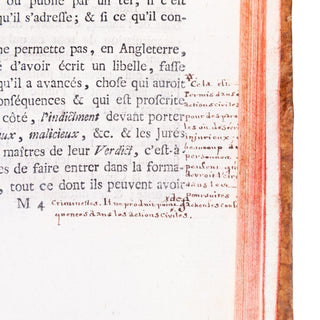 ou publié par un tel, il c'est
qu'il s'adresse; & si ce qu'il con-
ne permette pas, en Angleterre,
d'avoir écrit un libelle, fasse
qu'il a avancés, chose qui auroit
onséquences & qui est proscrite
côté, l'indictment devant porter
ux, malicieux, &c. & les Jurés
maîtres de leur Verdict, c'est-à
es de faire entrer dans la forma-
, tout ce dont ils peuvent avoir
M 4
Cela est
permis dans
actions civiles
pour des paro
les ou
injurieux
beaucoup de
personnes
pensent qu
devroit l'être
dans les
poursuites
criminelles. Il ne produit point de
quences dans les actions civiles.